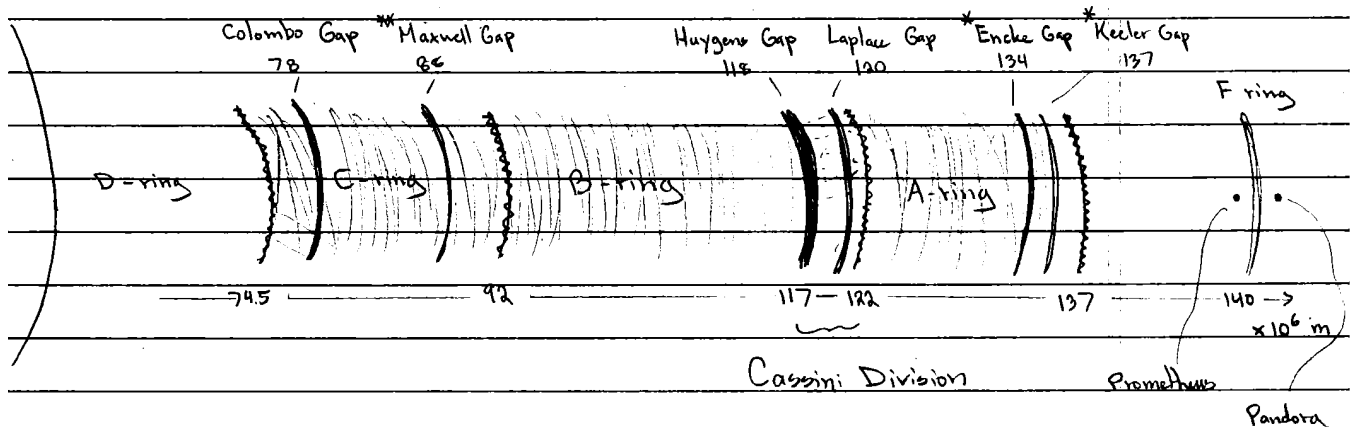 Colombo Gap ** Maxwell Gap Huygens Gap Laplace Gap *Encke Gap *Keeler Gap
78 88 118 120 134 137
F ring
D-ring C-ring B-ring A-ring
74.5 92 117 122 137 140 →
×10⁶ m
Cassini Division Prometheus
Pandora